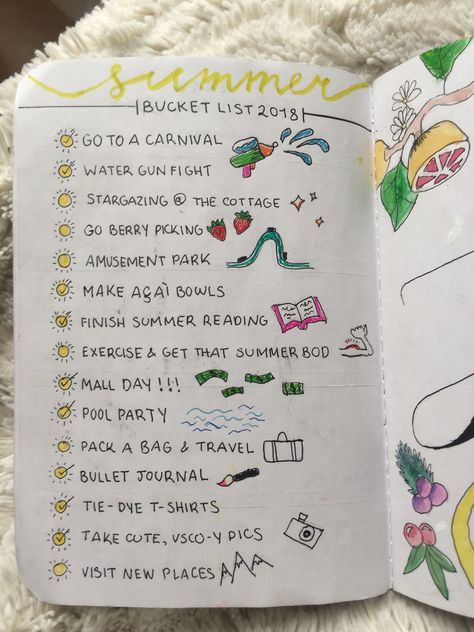 summer
BUCKET LIST 2018
GO TO A CARNIVAL
WATER GUN FIGHT
STARGAZING @ THE COTTAGE
GO BERRY PICKING
AMUSEMENT PARK
MAKE AÇAÌ BOWLS
FINISH SUMMER READING
EXERCISE & GET THAT SUMMER BOD
MALL DAY !!!
POOL PARTY
PACK A BAG & TRAVEL
BULLET JOURNAL
TIE-DYE T-SHIRTS
TAKE CUTE, VSCO-Y PICS
VISIT NEW PLACES